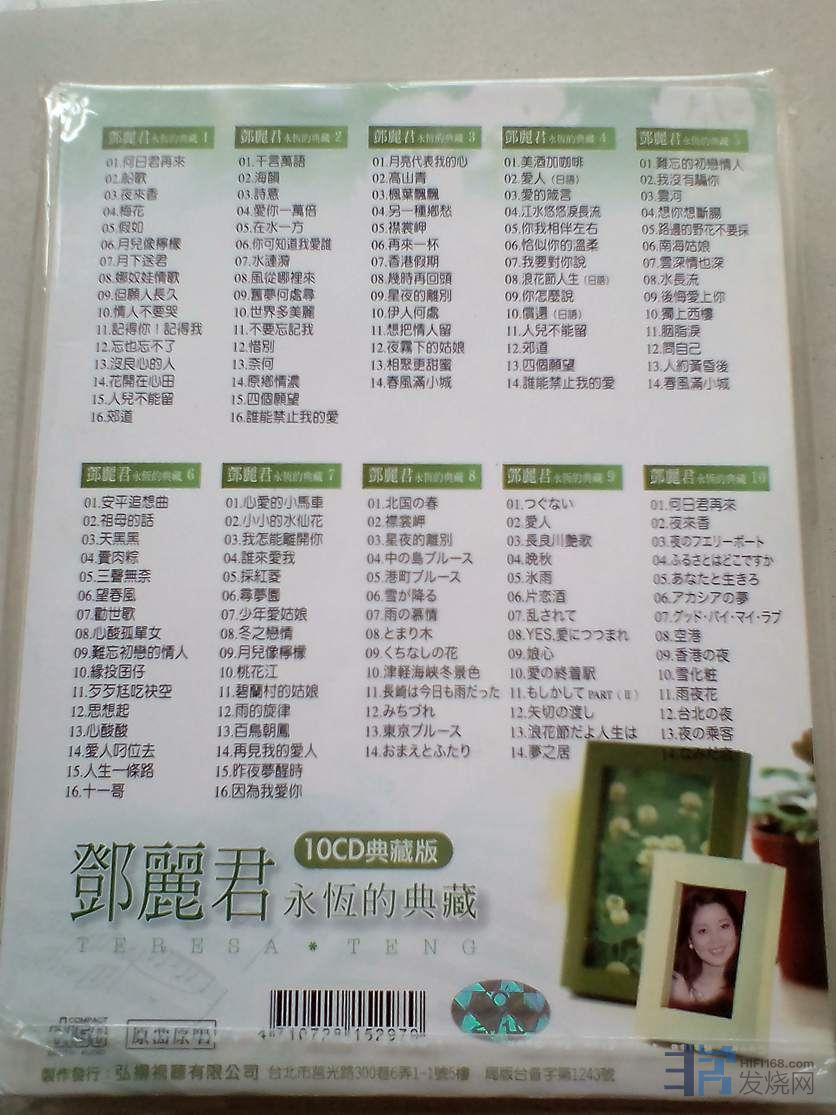 鄧麗君永恆的典藏 1
01.何日君再來
02.船歌
03.夜來香
04.梅花
05.假如
06.月兒像檸檬
07.月下送君
08.娜奴娃情歌
09.但願人長久
10.情人不要哭
11.記得你!記得我
12.忘也忘不了
13.沒良心的人
14.花開在心田
15.人兒不能留
16.郊道
鄧麗君永恆的典藏 2
01.千言萬語
02.海韻
03.詩意
04.愛你一萬倍
05.在水一方
06.你可知道我愛誰
07.水漣漪
08.風從哪裡來
09.舊夢何處尋
10.世界多美麗
11.不要忘記我
12.惜別
13.奈何
14.原鄉情濃
15.四個願望
16.誰能禁止我的愛
鄧麗君永恆的典藏 3
01.月亮代表我的心
02.高山青
03.楓葉飄飄
04.另一種鄉愁
05.襟裳岬
06.再來一杯
07.香港假期
08.幾時再回頭
09.星夜的離別
10.伊人何處
11.想把情人留
12.夜霧下的姑娘
13.相聚更甜蜜
14.春風滿小城
鄧麗君永恆的典藏 4
01.美酒加咖啡
02.愛人(日語)
03.愛的箴言
04.江水悠悠淚長流
05.你我相伴左右
06.恰似你的溫柔
07.我要對你說
08.浪花節人生(日語)
09.你怎麼說
10.償還(日語)
11.人兒不能留
12.郊道
13.四個願望
14.誰能禁止我的愛
鄧麗君永恆的典藏 5
01.難忘的初戀情人
02.我沒有騙你
03.雲河
04.想你想斷腸
05.路邊的野花不要採
06.南海姑娘
07.雲深情也深
08.水長流
09.後悔愛上你
10.獨上西樓
11.胭脂淚
12.問自己
13.人約黃昏後
14.春風滿小城
鄧麗君永恆的典藏 6
01.安平追想曲
02.祖母的話
03.天黑黑
04.賣肉粽
05.三聲無奈
06.望春風
07.勸世歌
08.心酸孤單女
09.難忘初戀的情人
10.緣投囝仔
11.歹歹尪吃袂空
12.思想起
13.心酸酸
14.愛人叼位去
15.人生一條路
16.十一哥
鄧麗君永恆的典藏 7
01.心愛的小馬車
02.小小的水仙花
03.我怎能離開你
04.誰來愛我
05.採紅菱
06.尋夢園
07.少年愛姑娘
08.冬之戀情
09.月兒像檸檬
10.桃花江
11.碧蘭村的姑娘
12.雨的旋律
13.百鳥朝鳳
14.再見我的愛人
15.昨夜夢醒時
16.因為我愛你
鄧麗君永恆的典藏 8
01.北国の春
02.襟裳岬
03.星夜的離別
04.中の島ブルース
05.港町ブルース
06.雪が降る
07.雨の慕情
08.とまり木
09.くちなしの花
10.津軽海峡冬景色
11.長崎は今日も雨だった
12.みちづれ
13.東京ブルース
14.おまえとふたり
鄧麗君永恆的典藏 9
01.つぐない
02.愛人
03.長良川艶歌
04.晚秋
05.氷雨
06.片恋酒
07.乱されて
08.YES,愛につつまれ
09.娘心
10.愛の終着駅
11.もしかして PART(Ⅱ)
12.矢切の渡し
13.浪花節だよ人生は
14.夢之居
鄧麗君永恆的典藏 10
01.何日君再來
02.夜來香
03.夜のフエリーボート
04.ふるさとはどこですか
05.あなたと生きろ
06.アカシアの夢
07.グッド・バイ・マイ・ラブ
08.空港
09.香港の夜
10.雪化粧
11.雨夜花
12.台北の夜
13.夜の乘客
10CD典藏版
鄧麗君永恆的典藏
TERESA * TENG
COMPACT
原音原唱
4 710729 152979
製作發行:弘揚視聽有限公司 台北市莒光路300巷6弄1-1號5樓 局版台音字第1243號
HIFI168.com
发烧网